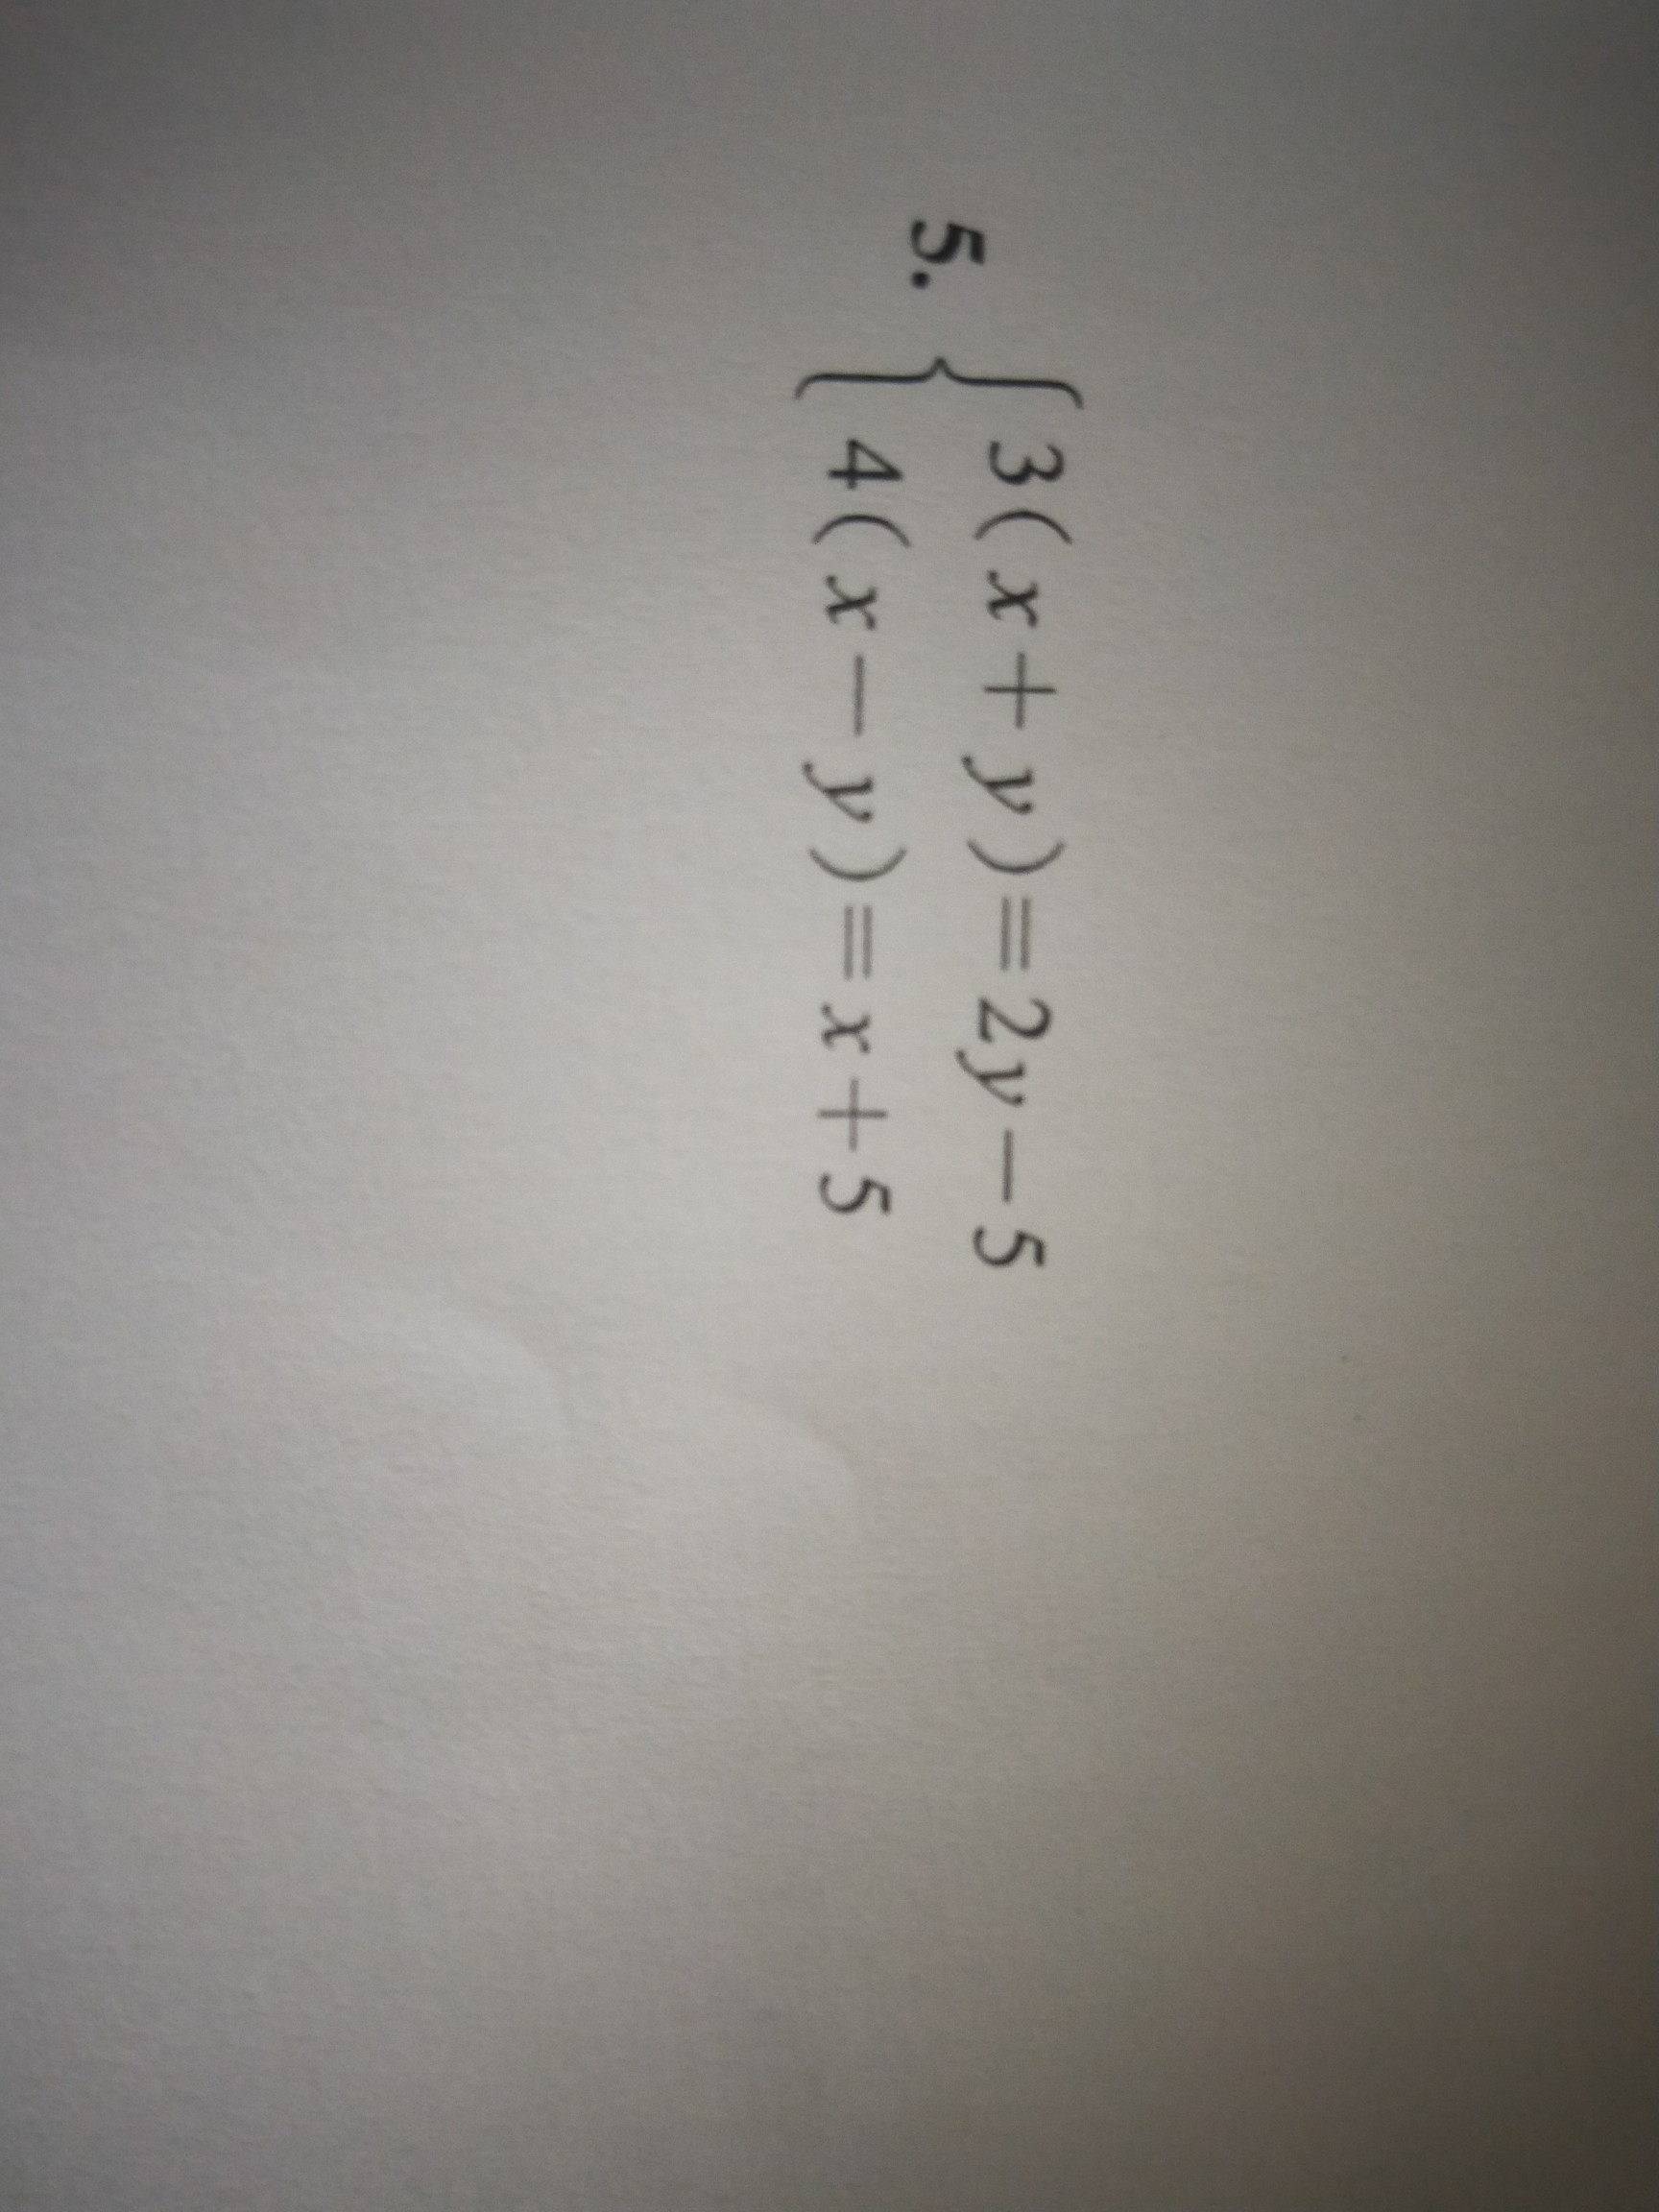 5. { 3(x+y)=2y-5
4(x-y)=x+5